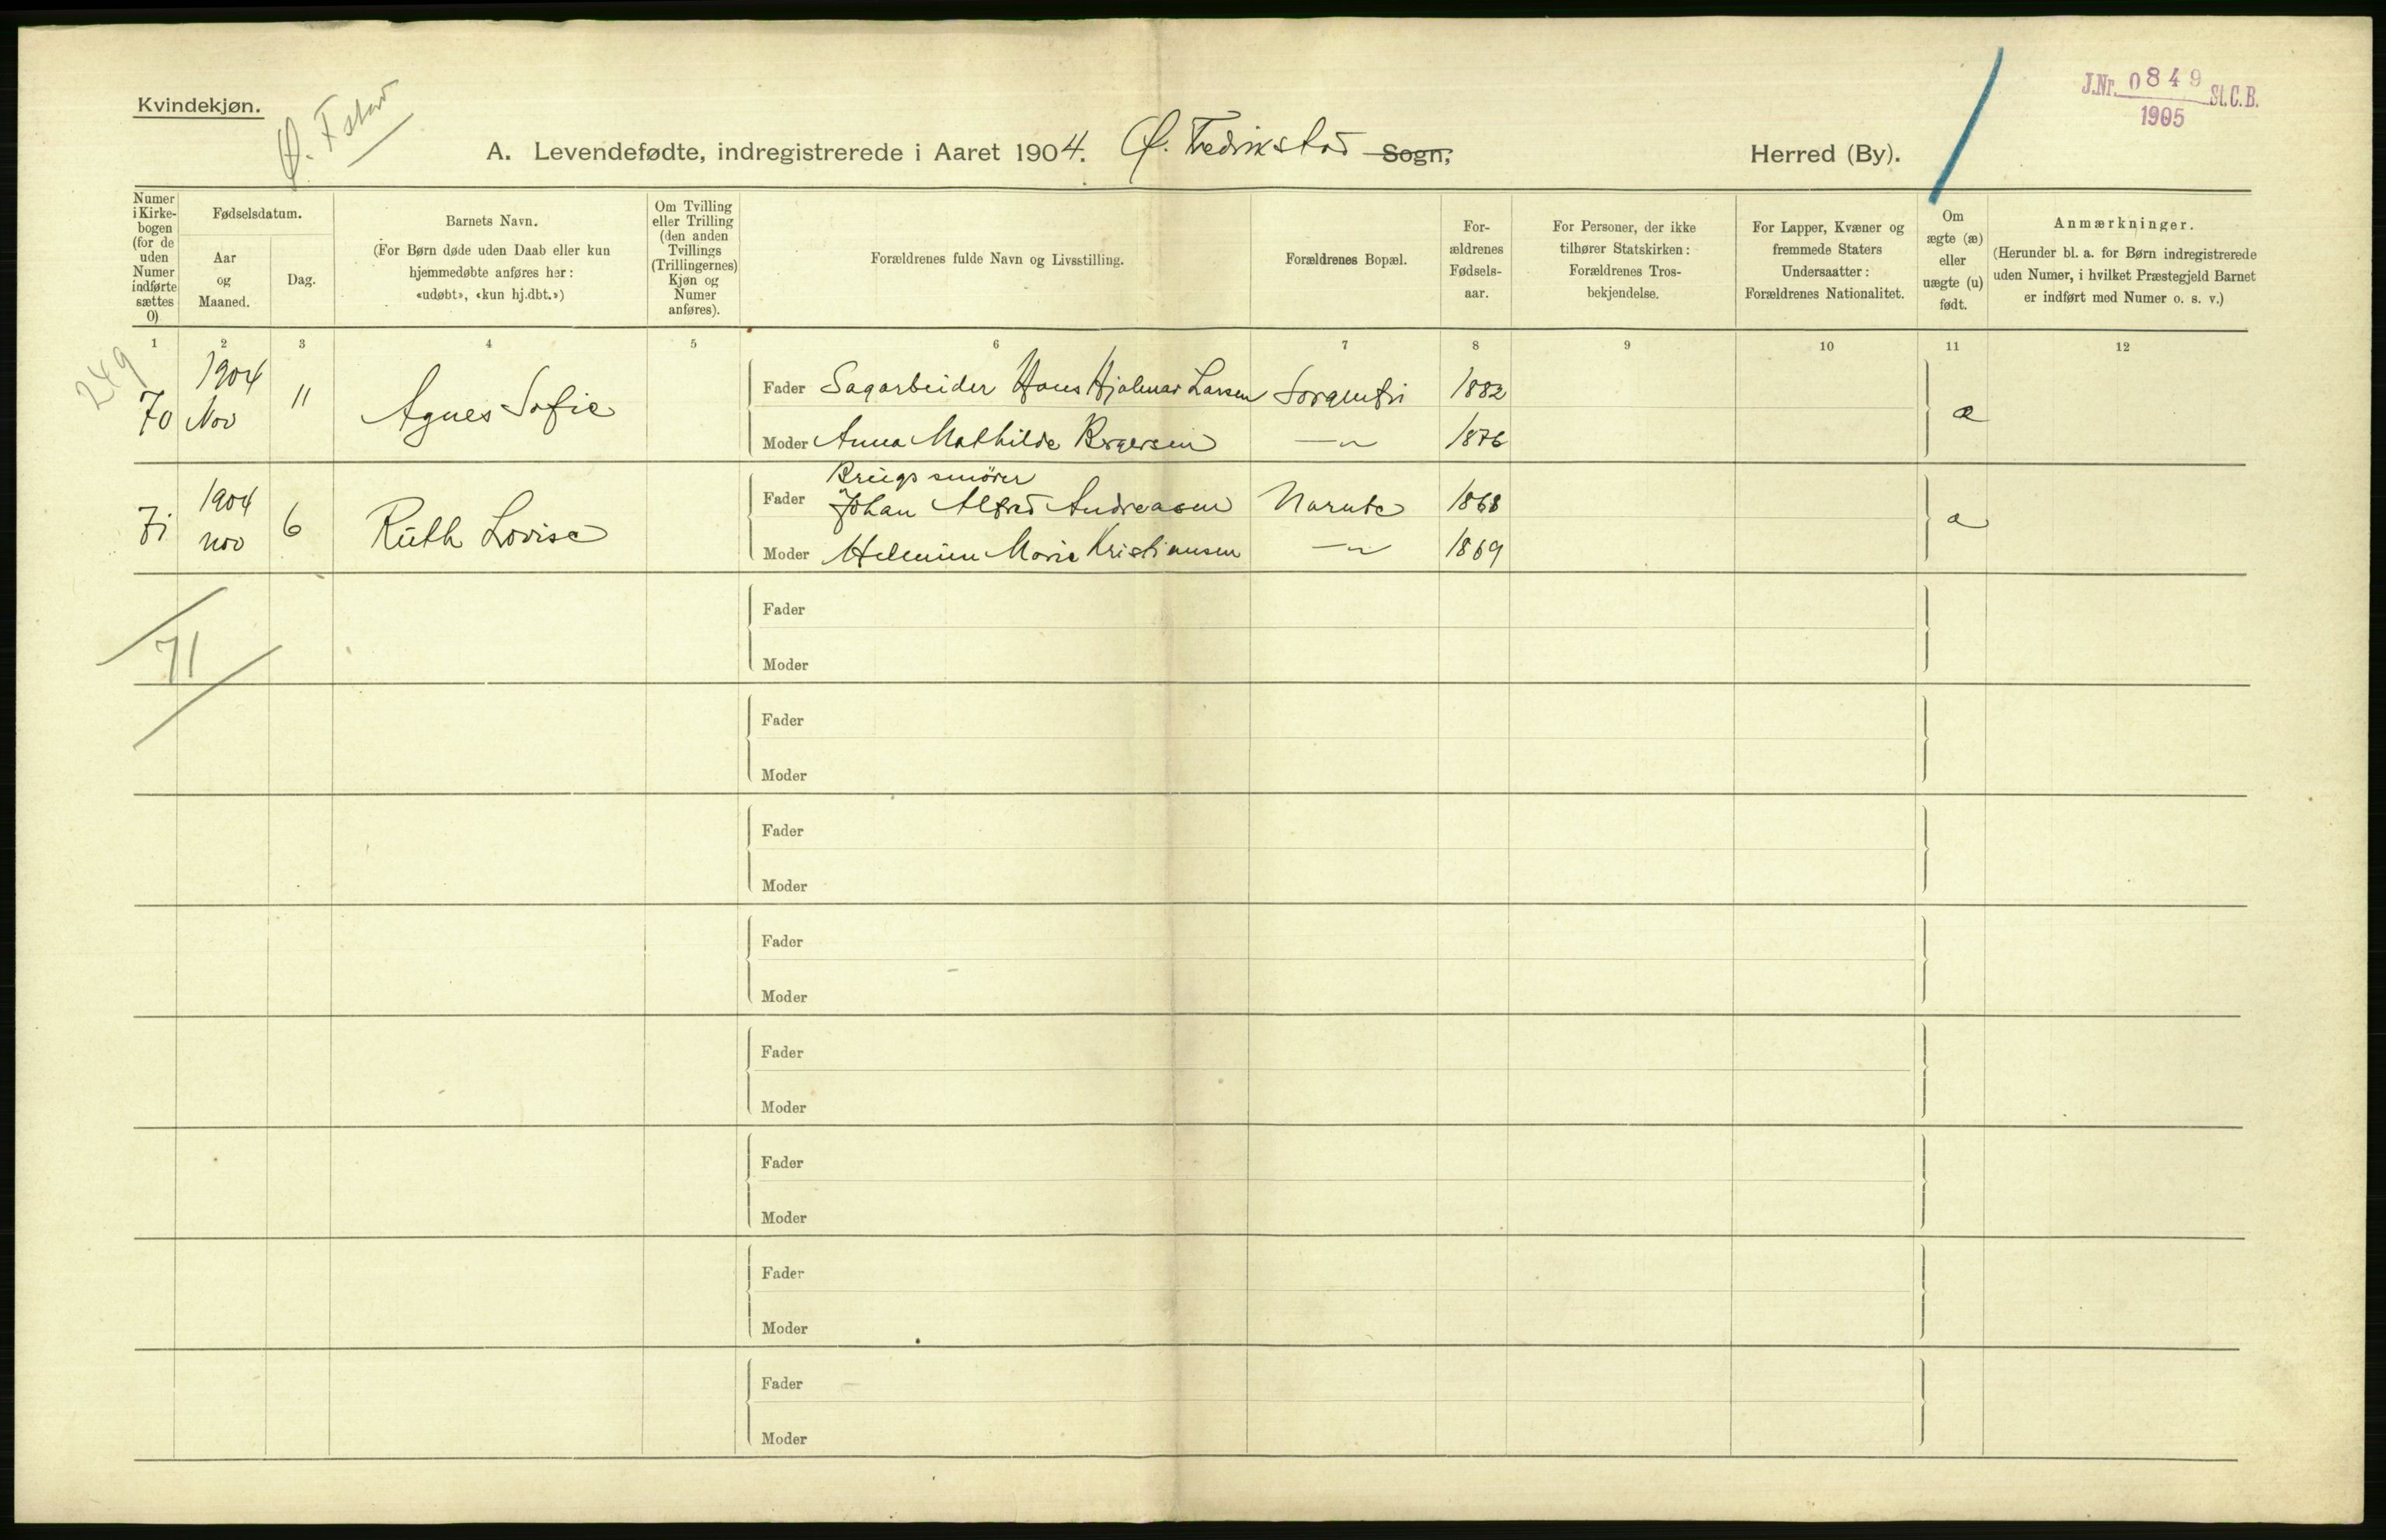 Kvindekjøn.
Ø. Fstad
J.Nr. 0849 St.C.B.
1905
A. Levendefødte, indregistrerede i Aaret 1904. Ø. Fredrikstad Sogn, Herred (By).
Numer i Kirke-bogen (for de uden Numer indførte sættes 0)
Fødselsdatum.
Aar og Maaned.
Dag.
Barnets Navn.
(For Børn døde uden Daab eller kun hjemmedøbte anføres her: «udøbt», «kun hj.dbt.»)
Om Tvilling eller Trilling (den anden Tvillings (Trillingernes) Kjøn og Numer anføres).
Forældrenes fulde Navn og Livsstilling.
Forældrenes Bopæl.
For-ældrenes Fødsels-aar.
For Personer, der ikke tilhører Statskirken: Forældrenes Tros-bekjendelse.
For Lapper, Kvæner og fremmede Staters Undersaatter: Forældrenes Nationalitet.
Om ægte (æ) eller uægte (u) født.
Anmærkninger.
(Herunder bl. a. for Børn indregistrerede uden Numer, i hvilket Præstegjeld Barnet er indført med Numer o. s. v.)
1 2 3 4 5 6 7 8 9 10 11 12
249
70 1904 Nov 11 Agnes Sofie
Fader Sagarbeider Hans Hjalmar Larsen Sorgenfri 1882 æ
Moder Anna Mathilde Borgersen —"— 1876
71 1904 nov 6 Ruth Lovise
Fader Brugssmører Johan Alfred Andreasen Narnte 1868 æ
Moder Helmine Marie Kristiansen —"— 1869
71
Fader
Moder
Fader
Moder
Fader
Moder
Fader
Moder
Fader
Moder
Fader
Moder
Fader
Moder
Fader
Moder